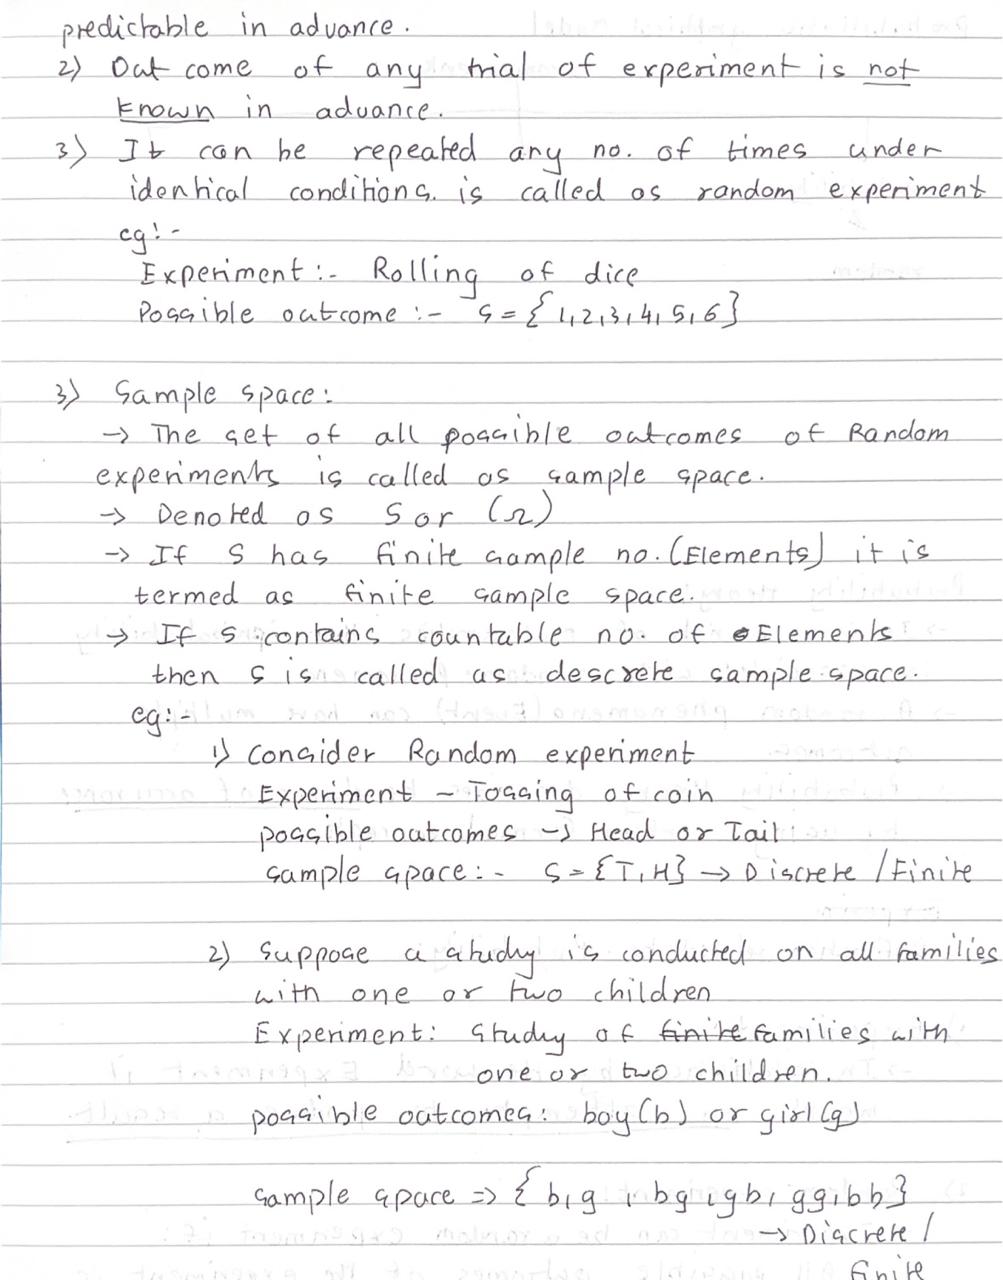 predictable in advance.
2) Out come of any trial of experiment is not
known in advance.
3) It can be repeated any no. of times under
identical conditions. is called as random experiment
eg:-
Experiment:- Rolling of dice
Possible outcome :- S = { 1,2,3,4,5,6 }
3) Sample space:
→ The set of all possible outcomes of Random
experiments is called as sample space.
→ Denoted as S or (Ω)
→ If S has finite sample no. (Elements) it is
termed as finite sample space.
→ If S contains countable no. of Elements
then S is called as descrete sample space.
eg:-
1) Consider Random experiment
Experiment - Tossing of coin
possible outcomes → Head or Tail
sample space:- S = {T, H} → Discrete / Finite
2) Suppose a study is conducted on all families
with one or two children
Experiment: Study of finite families with
one or two children.
possible outcomes: boy (b) or girl (g)
sample space => { b, g , bg, gb, gg, bb }
→ Discrete /
finite